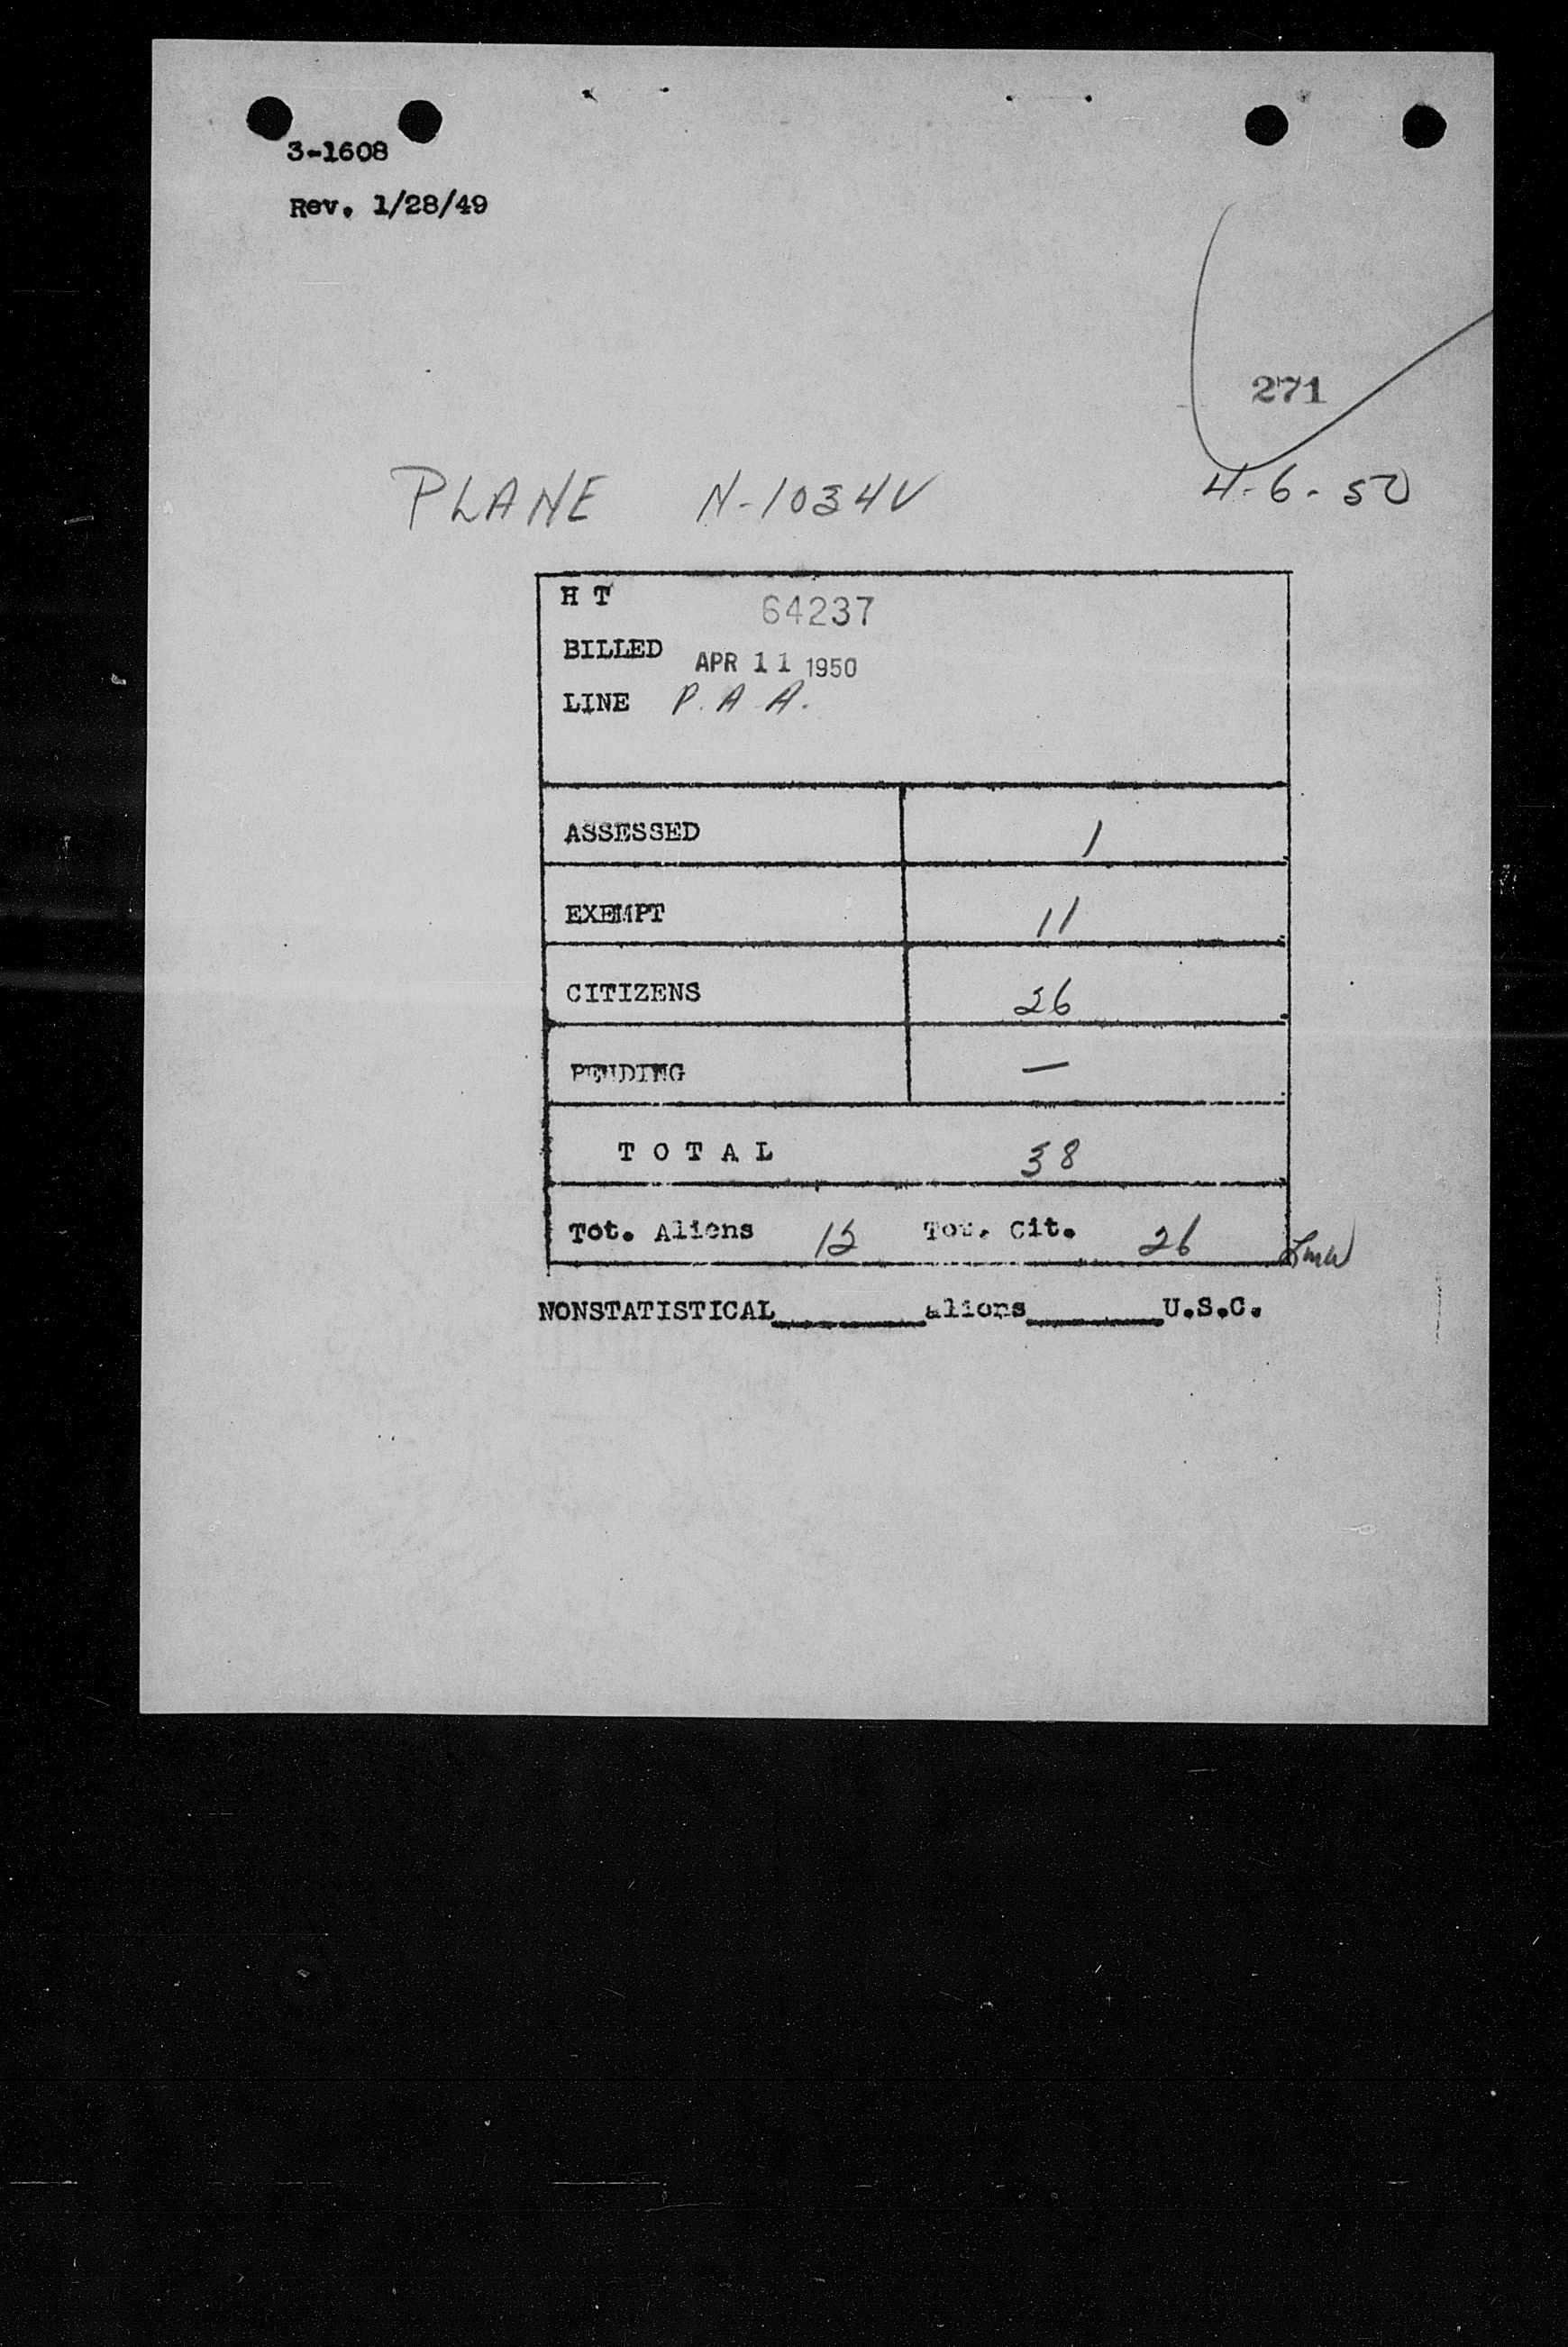 3-1608
Rev. 1/28/49
271
PLANE N-1034V 4-6-50
H T 64237
BILLED APR 11 1950
LINE P.A.A.
ASSESSED 1
EXEMPT 11
CITIZENS 26
PENDING —
TOTAL 38
Tot. Aliens 12 Tot. Cit. 26
NONSTATISTICAL________aliens________U.S.C.